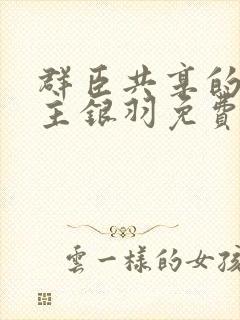 群臣共享的
主銀羽免費
雲一樣的女孩